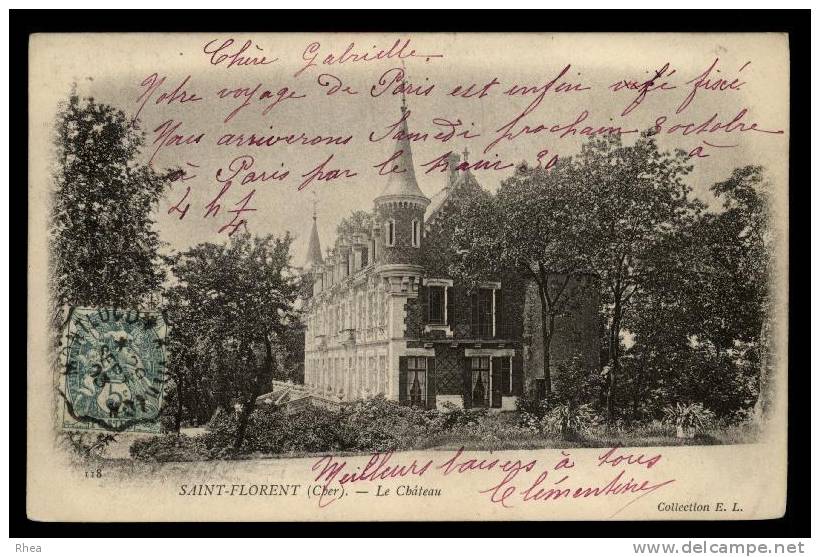 Chère Gabrielle
Notre voyage de Paris est enfin fixé.
Nous arriverons Samedi prochain 8 octobre
à Paris par le train à
4 h
MONTLUÇON
118
SAINT-FLORENT (Cher). — Le Château
Meilleurs baisers à tous
Clémentine
Collection E. L.
Rhea
http://www.delcampe.net